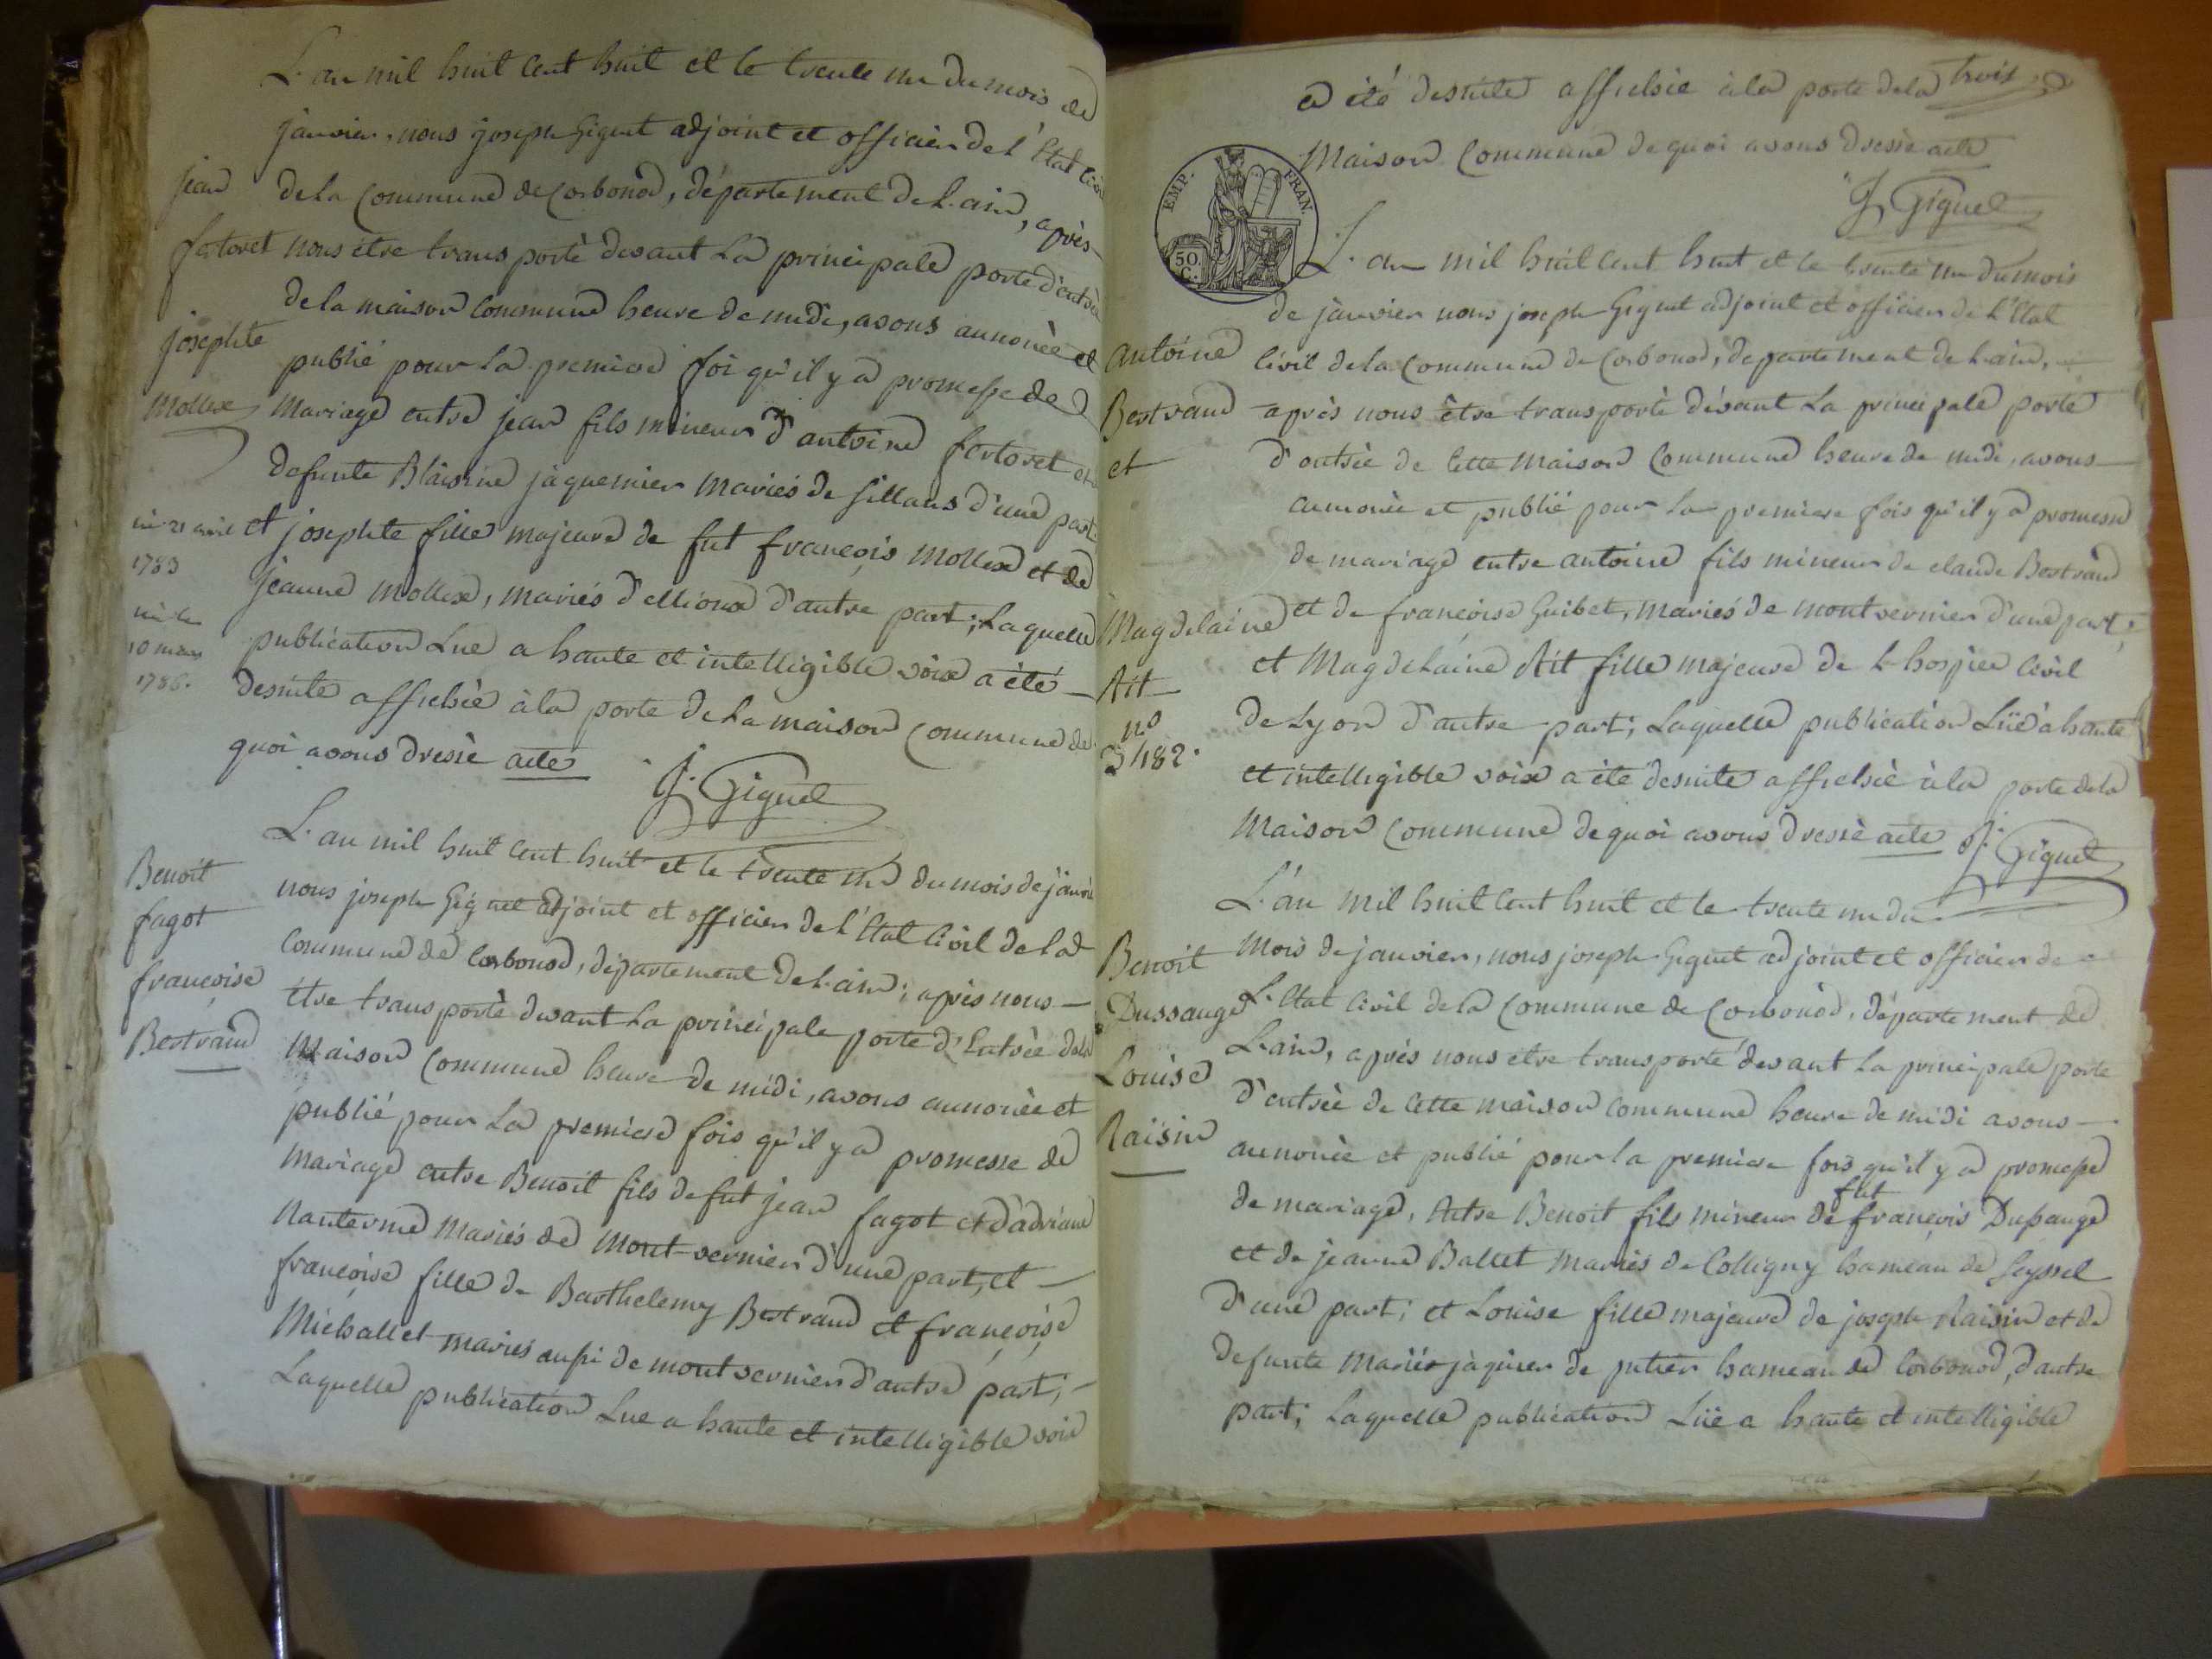 L'an mil huit cent huit et le trente un du mois de
janvier, nous joseph Giguet adjoint et officier de l'Etat Civil
de la Commune de Corbonod, département de L'ain, après
nous être transporté devant La principale porte d'entrée
de la maison Commune heure de midi, avons annoncé et
publié pour La premiere foi qu'il y a promesse de
Mariage entre jean fils mineur d'antoine fertoret et
defunte Blaisine jaquemier mariés de sillans d'une part
et josephte fille majeure de fut françois Mollex et de
jeanne Mollex, mariés d'Ellioux d'autre part; Laquelle
publication Lue a haute et intelligible voix a été
desuite affichée à la porte de La maison Commune de
quoi avons dressé acte
J. Giguet
jean
fertoret
josephte
Mollex
né 21 avril
1783
née le
10 mars
1786.
L'an mil huit cent huit et le trente un du mois de janvier
nous joseph Giguet adjoint et officier de l'Etat Civil de la
Commune de Corbonod, département de L'ain; après nous
être transporté devant La principale porte d'Entrée de la
Maison Commune heure de midi, avons annoncée et
publié pour La premiere fois qu'il y a promesse de
mariage entre Benoit fils de fut jean fagot et d'adriane
Nanterme Mariés de Mont-vernier d'une part, et
françoise fille de Barthelemy Bertrand et françoise
Michallet mariés aussi de montvernier d'autre part;
Laquelle publication Lue a haute et intelligible voix
Benoit
fagot
françoise
Bertrand
trois
a été desuite affichée à la porte de la
Maison Commune de quoi avons dressé acte
J. Giguet
EMP. FRAN.
50.
C.
L'an mil huit cent huit et le trente un du mois
de janvier nous joseph Giguet adjoint et officier de l'Etat
Civil de la Commune de Corbonod, departement de L'ain,
après nous être transporté dévant La principale porte
d'entrée de Cette Maison Commune heure de midi, avons
annoncée et publié pour La premiere fois qu'il y a promesse
de mariage entre antoine fils mineur de claude Bertrand
et de françoise Guibet, mariés de montvernier d'une part;
et Magdelaine Ait fille majeure de L'hospice Civil
de Lyon d'autre part; Laquelle publication Lüe à haute
et intelligible voix a été desuite affichée à la porte de la
Maison Commune de quoi avons dressé acte J. Giguet
Antoine
Bertrand
et
Magdelaine
Ait
no
3482.
L'an mil huit cent huit et le trente un du
Mois de janvier, nous joseph Giguet adjoint et officier de
L'Etat Civil de la Commune de Corbonod, département de
L'ain, après nous etre transporté devant La principale porte
d'entrée de Cette maison Commune heure de midi avons
annoncée et publié pour la premiere fois qu'il y a promesse
de mariage, Entre Benoit fils mineur de fut françois Dussauge
et de jeanne Ballet mariés de Colligny hameau de Seyssel
d'une part; et Louise fille majeure de joseph Raisin et de
defunte Mariée jàquier de putier hameau de Corbonod, d'autre
part; Laquelle publication Lüe a haute et intelligible
Benoit
Dussauge
Louise
Raisin